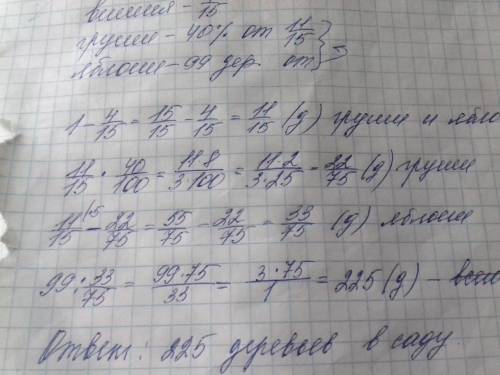 вишня - 4/15
груши - 40% от 11/15 } =
яблони - 99 дер. от
1 - 4/15 = 15/15 - 4/15 = 11/15 (д) груши и ябло
11/15 · 40/100 = 11·8/3·100 = 11·2/3·25 = 22/75 (д) груши
11/15 |·5 - 22/75 = 55/75 - 22/75 = 33/75 (д) яблони
99 : 33/75 = 99·75/33 = 3·75/1 = 225 (д) - всего
Ответ: 225 деревьев в саду.